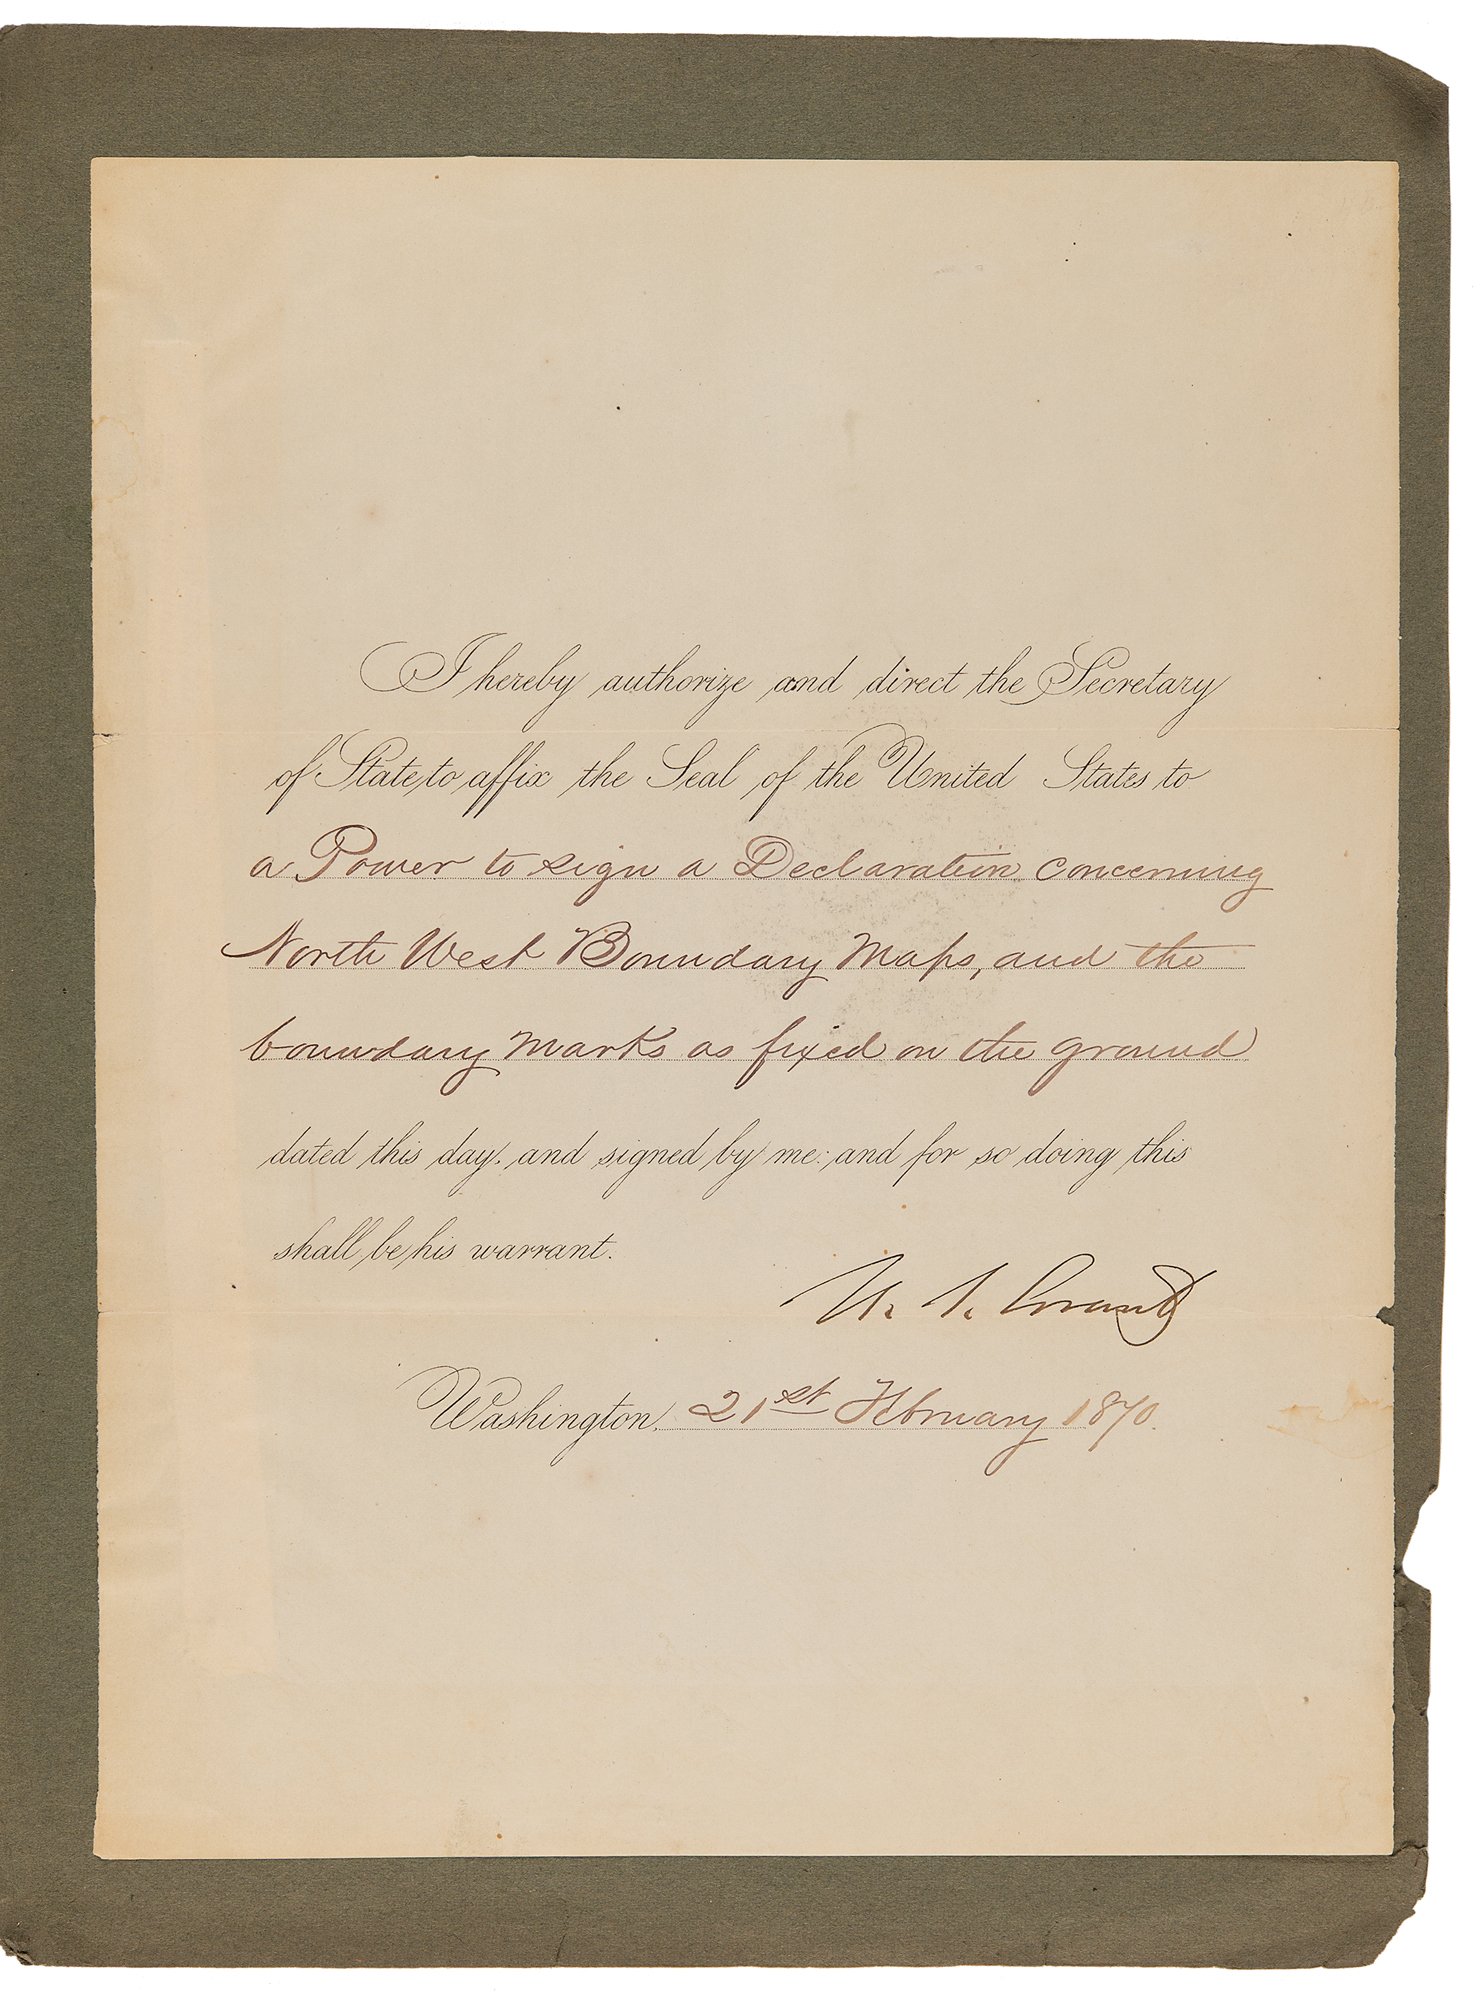 I hereby authorize and direct the Secretary
of State to affix the Seal of the United States to
a Power to sign a Declaration concerning
North West Boundary Maps, and the
boundary marks as fixed on the ground
dated this day, and signed by me: and for so doing this
shall be his warrant.
U. S. Grant
Washington, 21st February 1870.